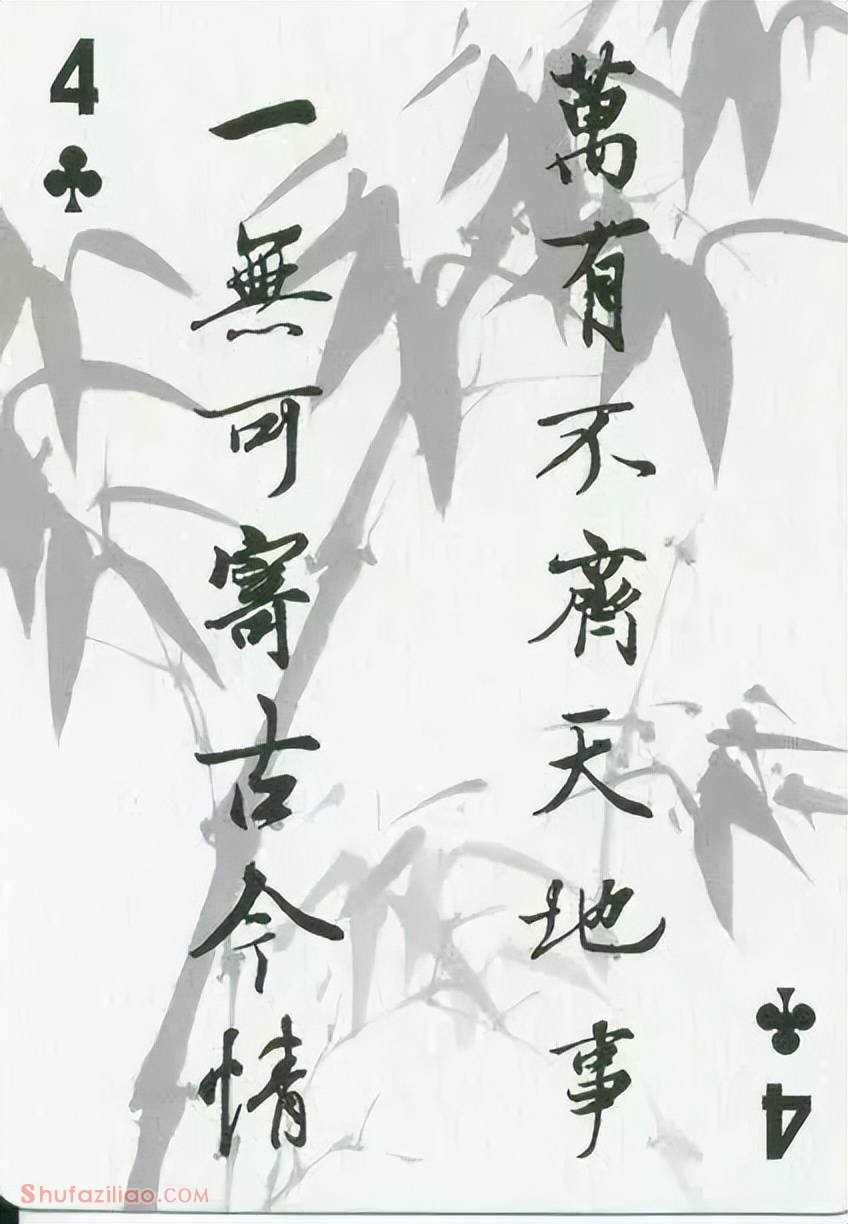 4
萬有不齊天地事
一無可寄古今情
4
Shufaziliao.COM